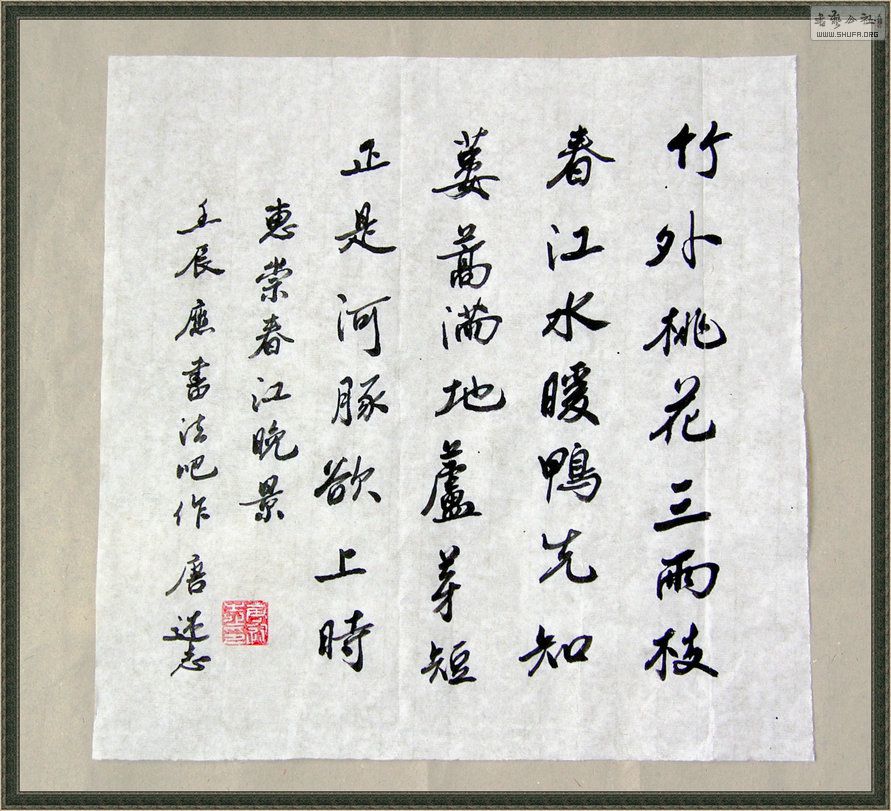 竹外桃花三兩枝
春江水暖鴨先知
蔞蒿滿地蘆芽短
正是河豚欲上時
惠崇春江晚景
壬辰應書法吧作 唐志
書藝公社
WWW.SHUFA.ORG